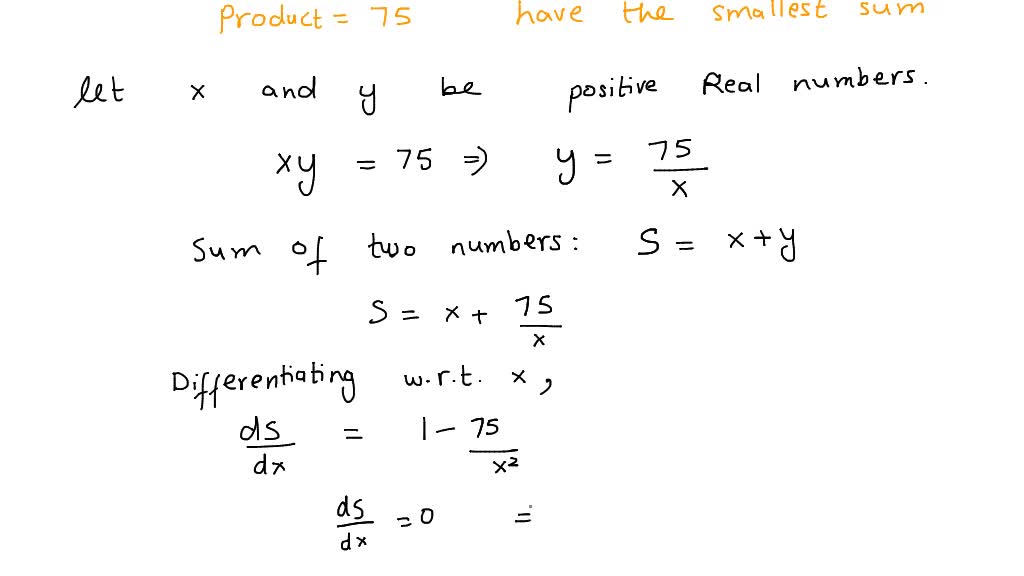 Product = 75 have the smallest sum
let x and y be positive Real numbers.
xy = 75 ⇒ y = 75/x
Sum of two numbers: S = x + y
S = x + 75/x
Differentiating w.r.t. x,
ds/dx = 1 - 75/x²
ds/dx = 0 =